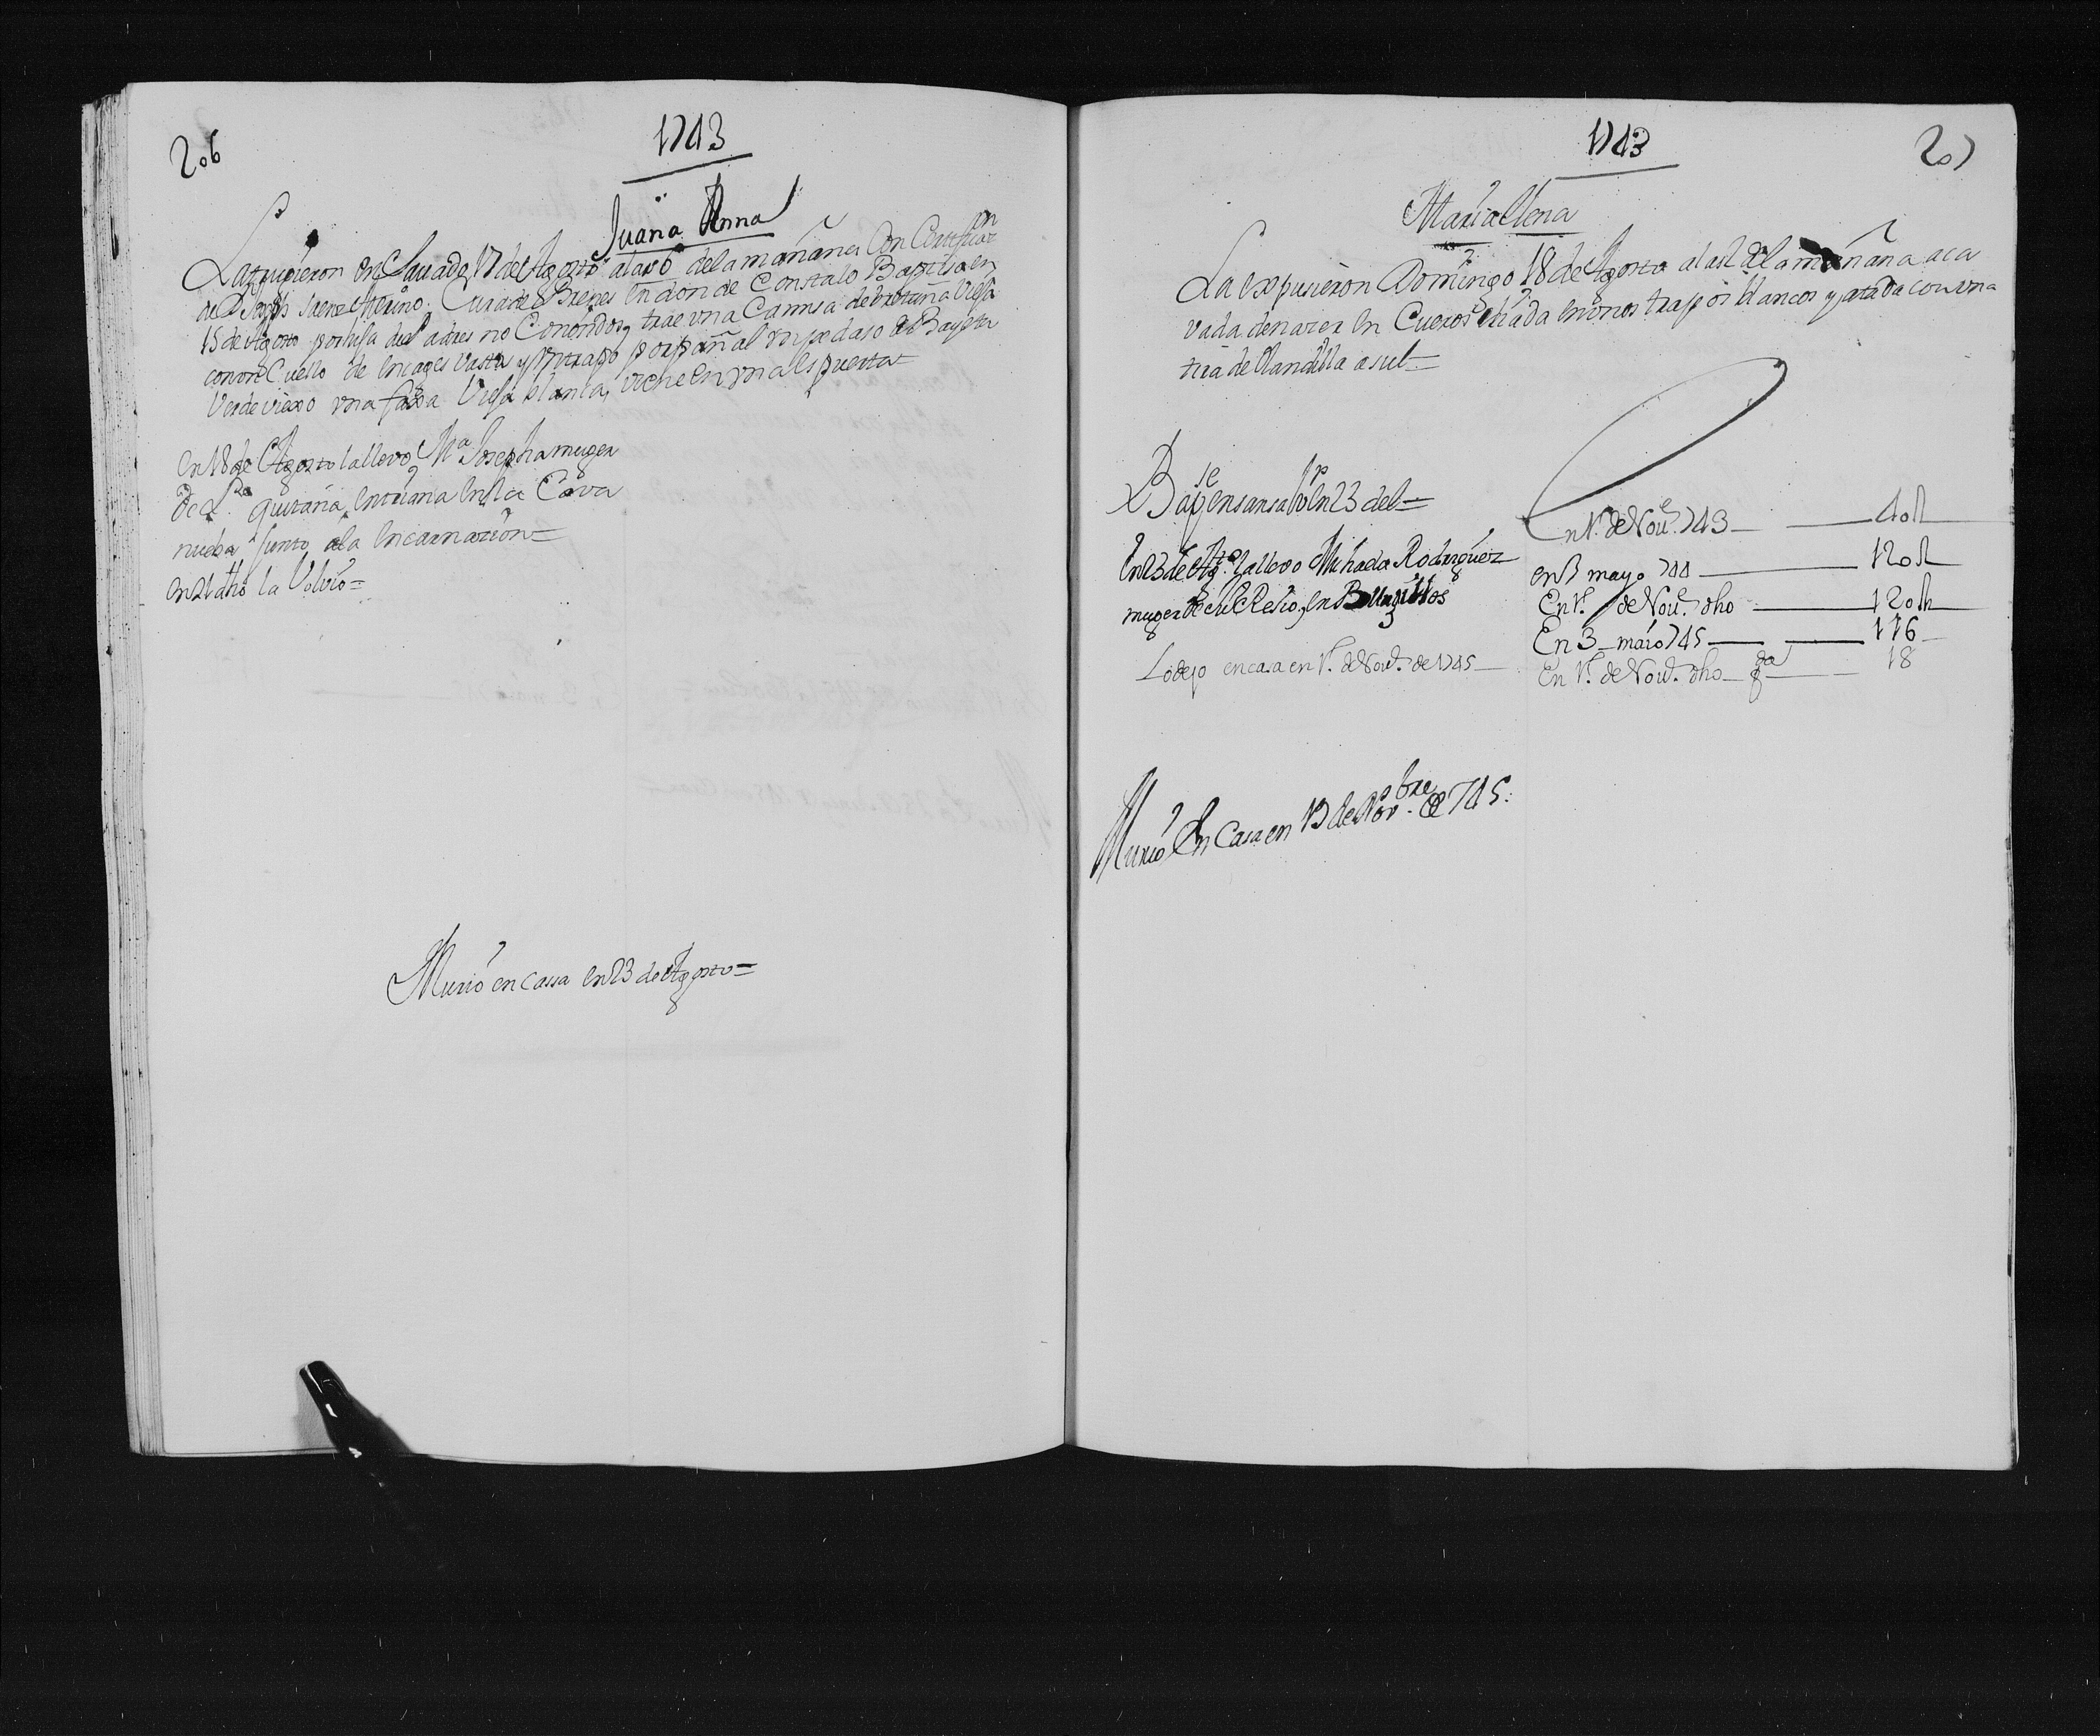 206
1743
Juana Anna
La expusieron en Sauado 17 de Agosto a las 6 de la mañana Con Certificaz.on
de Joseph Saens Merino Cura de Brenes en donde Consta lo Baptiso en
15 de Agosto por hija de Padres no Conosidos, trae vna Camisa de bretaña Vieja
con vn Cuello de encages Vasta y vn trapo por pañal vn pedaso de Bayeta
Verde viexo vna faxa Vieja blanca, viene en vna espuerta
en 18 de Agosto la llevo M.a Josepha muger
de quitana, en triana en la Cava
nueba junto a la encarnazion =
en 21 dho la Volvio =
Murio en cassa en 23 de Agosto =
1743
207
Maria Elena
La expusieron Domingo 18 de Agosto a las 2 de la mañana aca
vada de nazer en Cueros liada en vnos trapos blancos y atada con vna
tira de olandilla asul =
en 23 del =
En 23 de Ag.to la llevo Michaela Rodriguez
muger de en Burguillos
Lo dejo en casa en 1.o de Nou.e de 1745
En 1.o de Nou.e 743 — 40 R
en 3 mayo 744 — 120 R
En 1.o de Nou.e dho — 120 R
En 3 maio 745 — 116
En 1.o de Nou.e dho — 18
Murio En Casa en 13 de Nov.bre de 745.